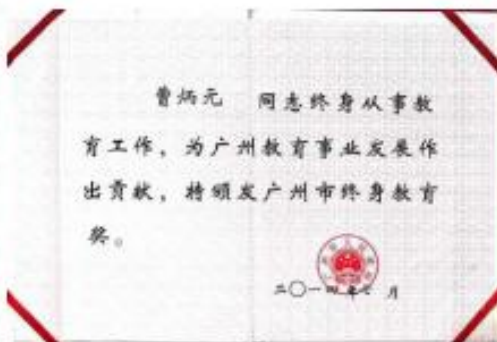 曾炳元 同志终身从事教
育工作，为广州教育事业发展作
出贡献，特颁发广州市终身教育
奖。
二〇一四年 月